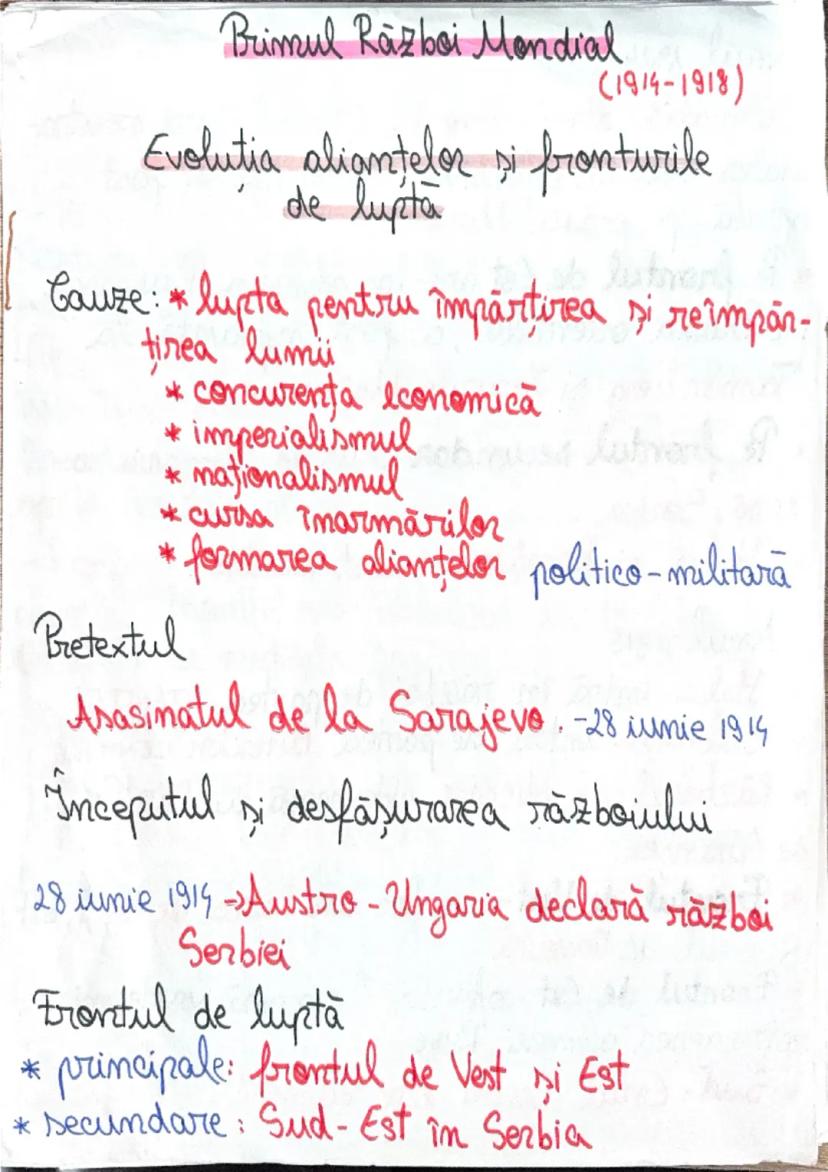 Primul Război Mondial
(1914-1918)
Evoluția alianțelor și fronturile
de luptă
Cauze: * lupta pentru împărtirea și reîmpăr-
țirea lumii
* concurența economică
* imperialismul
* naționalismul
* cursa înarmărilor
* formarea alianțelor politico-militară
Pretextul
Asasinatul de la Sarajevo. -28 iunie 1914
Începutul și desfășurarea războiului
28 iunie 1914 → Austro-Ungaria declară război
Serbiei
Frontul de luptă
* principale: frontul de Vest și Est
* secundare: Sud-Est în Serbia